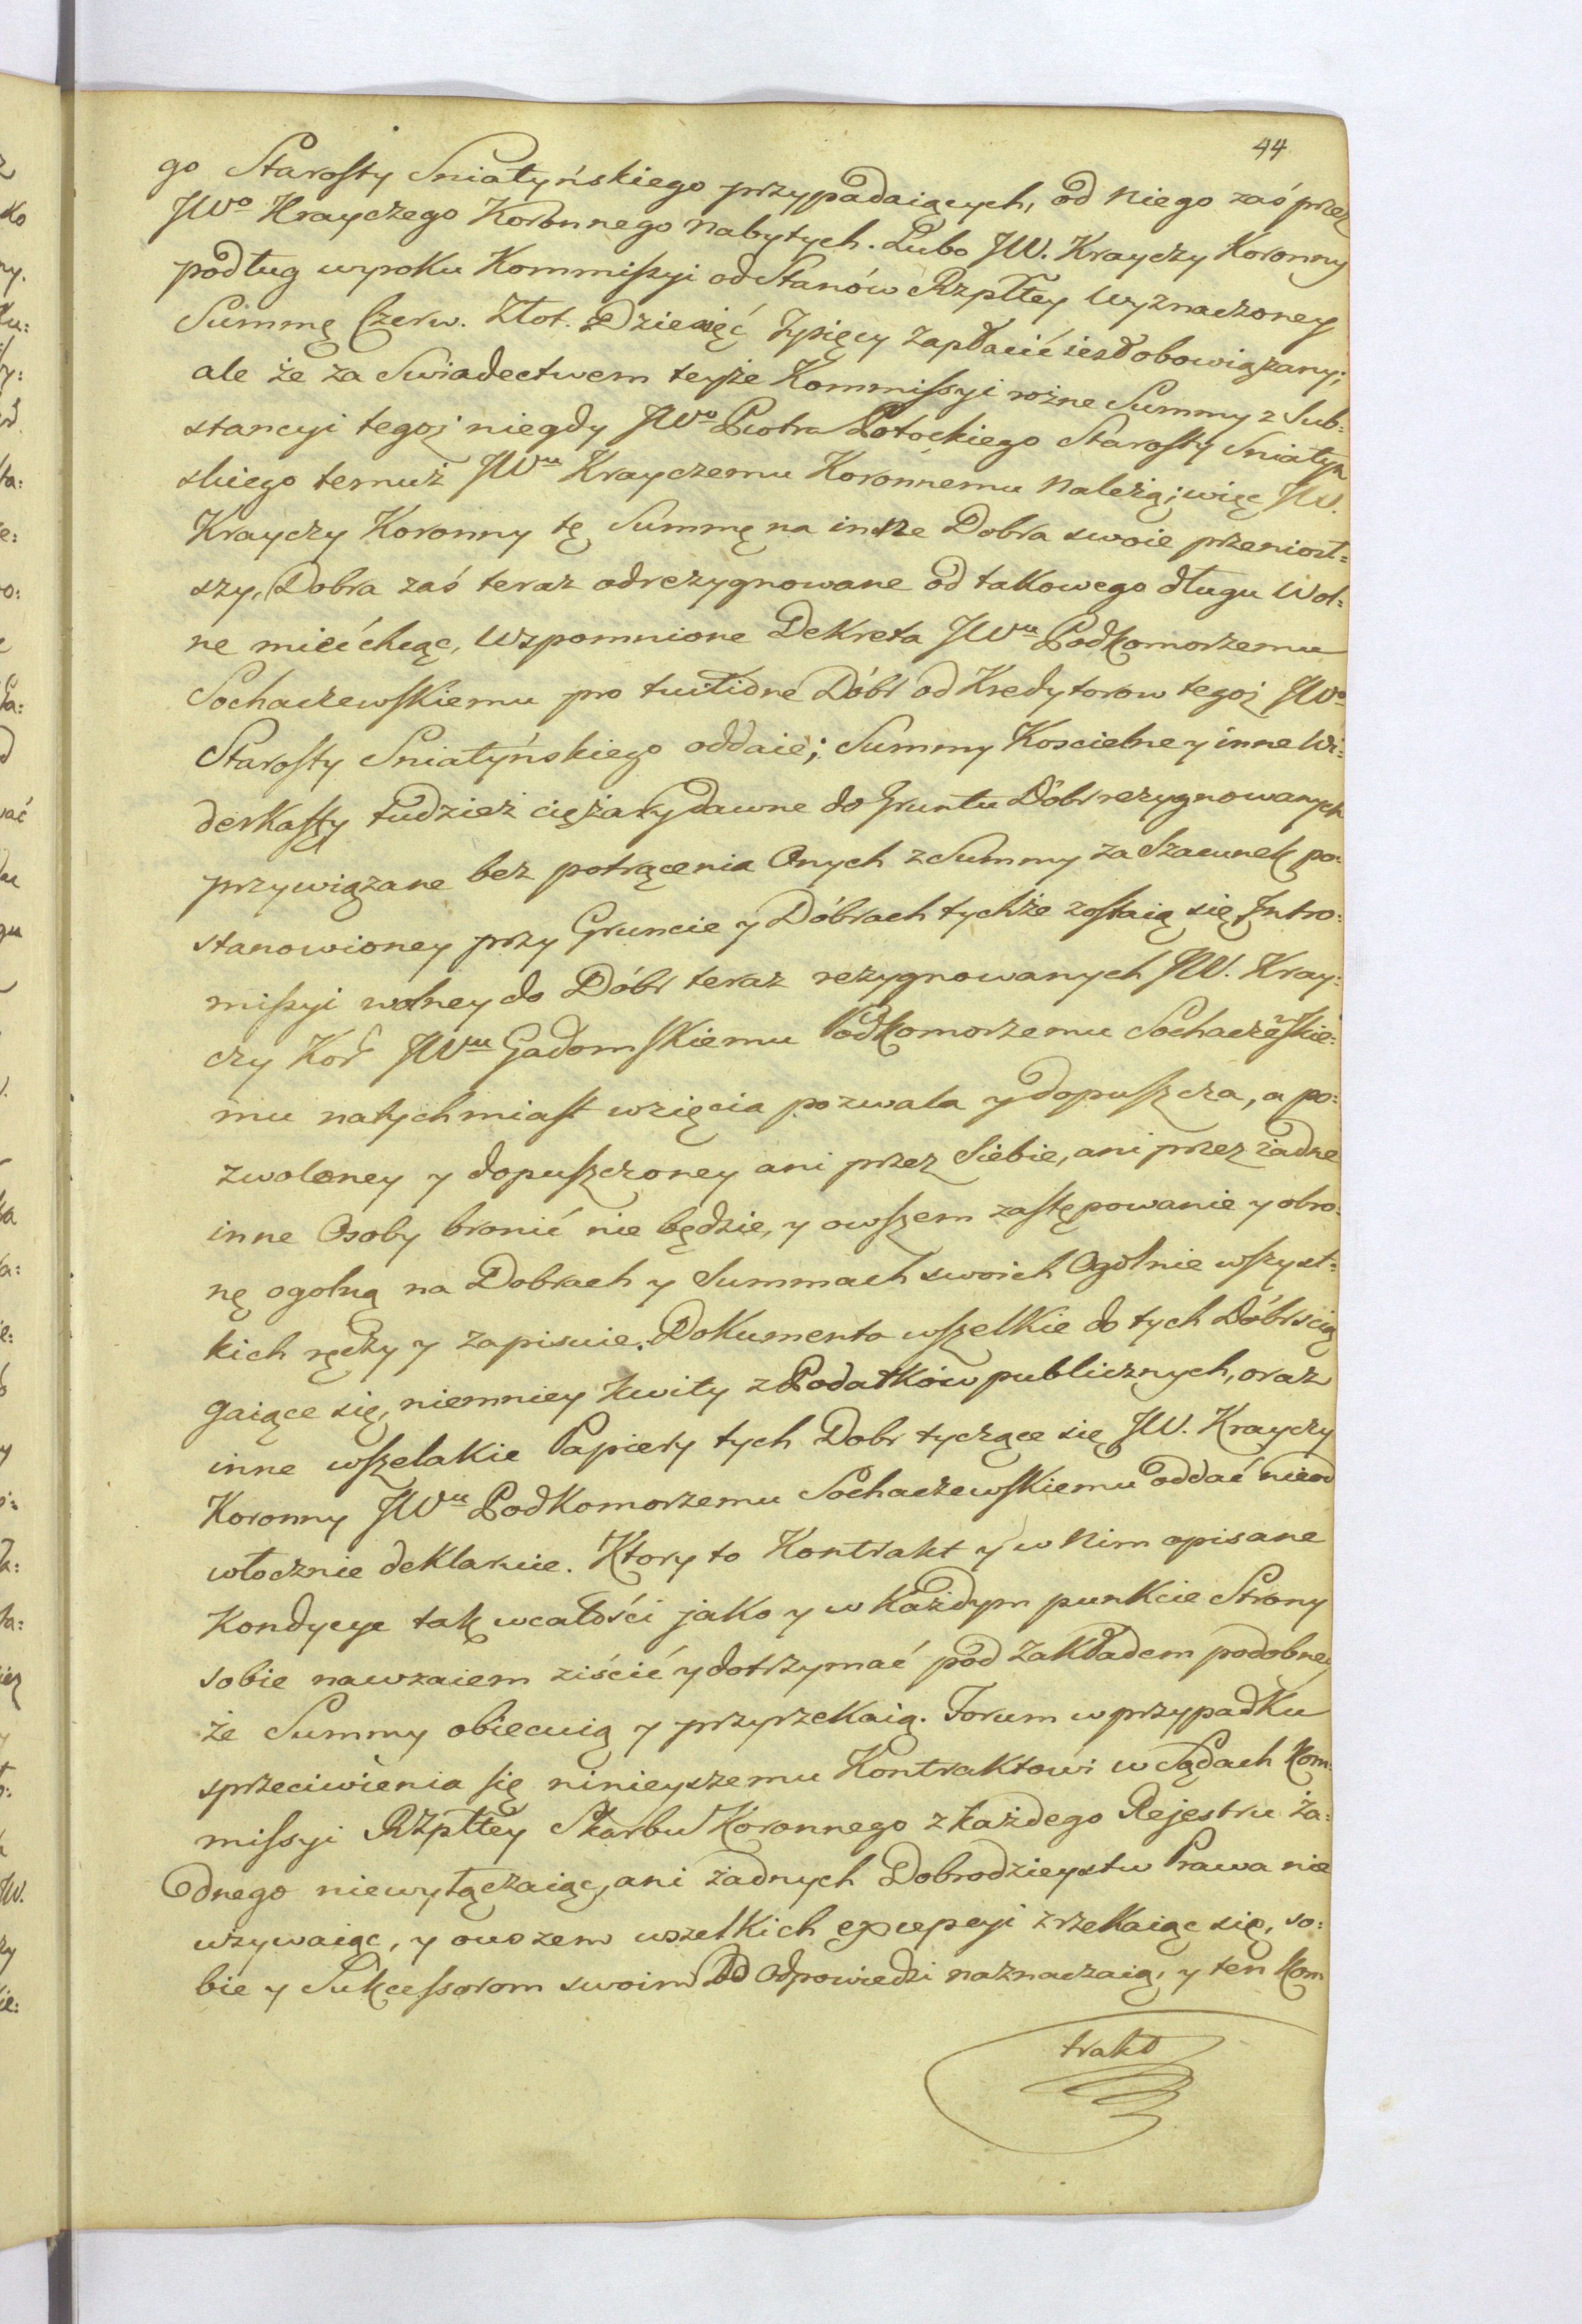 44
go Starosty Sniatyńskiego przypadaiących, od Niego zaś przez
JWo Krayczego Koronnego nabytych. Lubo JW. Krayczy Koronny
podług wyroku Kommissyi od Stanów Rzpltey Wyznaczoney
Summę Czerw. Złot. Dziewięć Tysięcy zapłacić iest obowiązany;
ale że za Swiadectwem teyże Kommissyi rożne Summy z Sub=
stancyi tegoż niegdy JWo Piotra Potockiego Starosty Sniatyń
skiego temuż JWu Krayczemu Koronnemu Należą; więc JW.
Krayczy Koronny tę Summę na insze Dobra swoie przeniozł=
szy, Dobra zaś teraz odrezygnowane od takowego długu Wol=
ne mieć chcąc, Wspomnione Dekreta JWu Podkomorzemu
Sochaczewskiemu pro tuitione Dóbr od Kredytorow tegoż JWo
Starosty Sniatyńskiego oddaie; Summy Koscielne y inne Wi=
derkaffy tudzież ciężary dawne do Gruntu Dóbr rezygnowanych
przywiązane bez potrącenia Onych z Summy za Szacunek po=
stanowioney przy Gruncie y Dóbrach tychże zostaią się Intro=
missyi wolney do Dóbr teraz rezygnowanych JW. Kray=
czy Kor JWu Gadomskiemu Podkomorzemu Sochaczēskie=
mu natychmiast wzięcia pozwala y dopuszcza, a po=
zwoloney y dopuszczoney ani przez Siebie, ani przez żadne
inne Osoby bronić nie będzie, y owszem zastępowanie y obro=
nę ogolną na Dobrach y Summach swoich Ogolnie wszyst=
kich ręczy y zapisuie. Dokumenta wszelkie do tych Dóbr scią
gaiące się, niemniey kwity z Podatków publicznych, oraz
inne wszelakie Papiery tych Dobr tyczące się JW. Krayczy
Koronny JWu Podkomorzemu Sochaczewskiemu oddać nieod
włocznie deklaruie. Ktory to Kontrakt y w Nim opisane
Kondycye tak w całości jako y w każdym punkcie Strony
sobie nawzaiem ziścić y dotrzymać pod Zakładem podobney
że Summy obiecuią y przyrzekaią. Forum w przypadku
sprzeciwienia się ninieyszemu Kontraktowi w Sądach Kom=
missyi Rzpltey Skarbu Koronnego z każdego Rejestru ża=
dnego niewyłączaiąc, ani żadnych Dobrodzieystw Prawa nie
używaiąc, y owszem wszelkich excepcyi zrzekaiąc się, so=
bie y Sukcessorom swoim do Odpowiedzi naznaczaią, y ten Kon
trakt